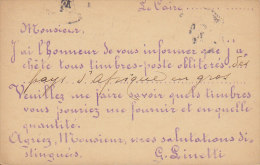 Le Caire,
Monsieur,
J'ai l'honneur de vous informer que j'a
chète tous timbres-poste oblitérés des
pays d'Afrique en gros
Veuillez me faire savoir quels timbres
vous pourriez me fournir et en quelle
quantité.
Agréez, Monsieur, mes salutations di
stinguées. G. Linetti